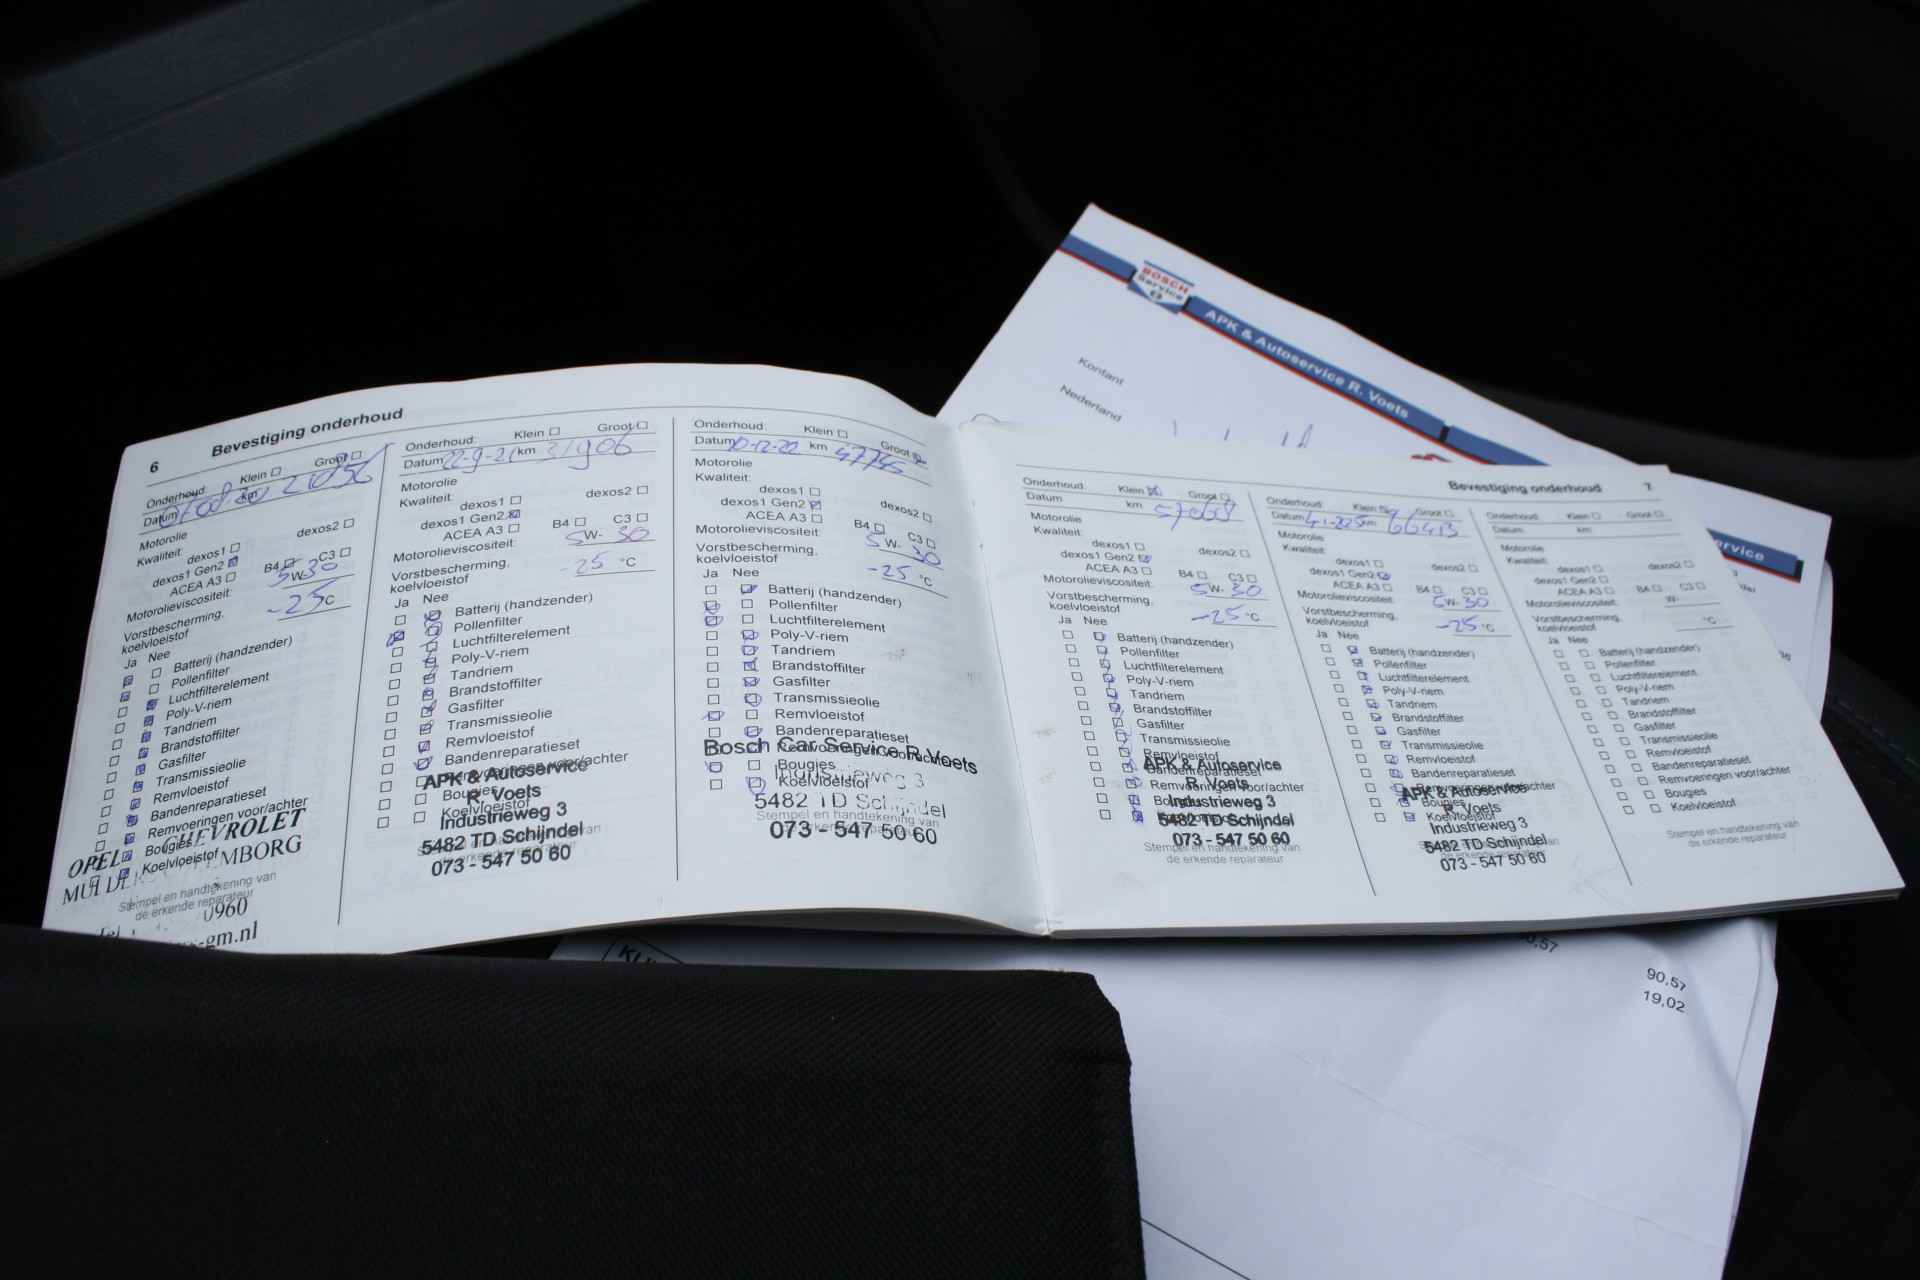 BOSCH
Service
APK & Autoservice R. Voets
Kontant
Nederland
6
Bevestiging onderhoud
Onderhoud: Klein Groot
Datum km 21056
Motorolie
Kwaliteit:
dexos1 dexos2
dexos1 Gen2
ACEA A3 B4 C3
Motorolieviscositeit: 5W-30
Vorstbescherming, koelvloeistof -25 °C
Ja Nee
Batterij (handzender)
Pollenfilter
Luchtfilterelement
Poly-V-riem
Tandriem
Brandstoffilter
Gasfilter
Transmissieolie
Remvloeistof
Bandenreparatieset
Remvoeringen voor/achter
Bougies
Koelvloeistof
OPEL CHEVROLET
Stempel en handtekening van
de erkende reparateur
0960
-gm.nl
Onderhoud: Klein Groot
Datum 22-9-21 km 31906
Motorolie
Kwaliteit:
dexos1 dexos2
dexos1 Gen2
ACEA A3 B4 C3
Motorolieviscositeit: 5W-30
Vorstbescherming,
koelvloeistof -25 °C
Ja Nee
Batterij (handzender)
Pollenfilter
Luchtfilterelement
Poly-V-riem
Tandriem
Brandstoffilter
Gasfilter
Transmissieolie
Remvloeistof
Bandenreparatieset
Remvoeringen voor/achter
Bougies
Koelvloeistof
APK & Autoservice
R. Voets
Industrieweg 3
5482 TD Schijndel
073 - 547 50 60
Onderhoud: Klein Groot
Datum 10-12-22 km 47745
Motorolie
Kwaliteit:
dexos1 dexos2
dexos1 Gen2
ACEA A3 B4 C3
Motorolieviscositeit: 5W-30
Vorstbescherming,
koelvloeistof -25 °C
Ja Nee
Batterij (handzender)
Pollenfilter
Luchtfilterelement
Poly-V-riem
Tandriem
Brandstoffilter
Gasfilter
Transmissieolie
Remvloeistof
Bandenreparatieset
Bougies
Koelvloeistof
Bosch Car Service R. Voets
Industrieweg 3
5482 TD Schijndel
Stempel en handtekening van
073 - 547 50 60
Bevestiging onderhoud 7
Onderhoud: Klein Groot
Datum km 57068
Motorolie
Kwaliteit:
dexos1 dexos2
dexos1 Gen2
ACEA A3 B4 C3
Motorolieviscositeit: 5W-30
Vorstbescherming,
koelvloeistof -25 °C
Ja Nee
Batterij (handzender)
Pollenfilter
Luchtfilterelement
Poly-V-riem
Tandriem
Brandstoffilter
Gasfilter
Transmissieolie
Remvloeistof
Bandenreparatieset
Remvoeringen voor/achter
APK & Autoservice
R. Voets
Industrieweg 3
5482 TD Schijndel
073 - 547 50 60
Stempel en handtekening van
de erkende reparateur
Onderhoud: Klein Groot
Datum km 66413
Motorolie
Kwaliteit:
dexos1 dexos2
dexos1 Gen2
ACEA A3 B4 C3
Motorolieviscositeit: 5W-30
Vorstbescherming,
koelvloeistof -25 °C
Ja Nee
Batterij (handzender)
Pollenfilter
Luchtfilterelement
Poly-V-riem
Tandriem
Brandstoffilter
Gasfilter
Transmissieolie
Remvloeistof
Bandenreparatieset
Remvoeringen voor/achter
Bougies
Koelvloeistof
APK & Autoservice
R. Voets
Industrieweg 3
5482 TD Schijndel
073 - 547 50 60
Onderhoud: Klein Groot
Datum km
Motorolie
Kwaliteit:
dexos1 dexos2
dexos1 Gen2
ACEA A3 B4 C3
Motorolieviscositeit: W-
Vorstbescherming,
koelvloeistof °C
Ja Nee
Batterij (handzender)
Pollenfilter
Luchtfilterelement
Poly-V-riem
Tandriem
Brandstoffilter
Gasfilter
Transmissieolie
Remvloeistof
Bandenreparatieset
Remvoeringen voor/achter
Bougies
Koelvloeistof
Stempel en handtekening van
de erkende reparateur
90,57
19,02